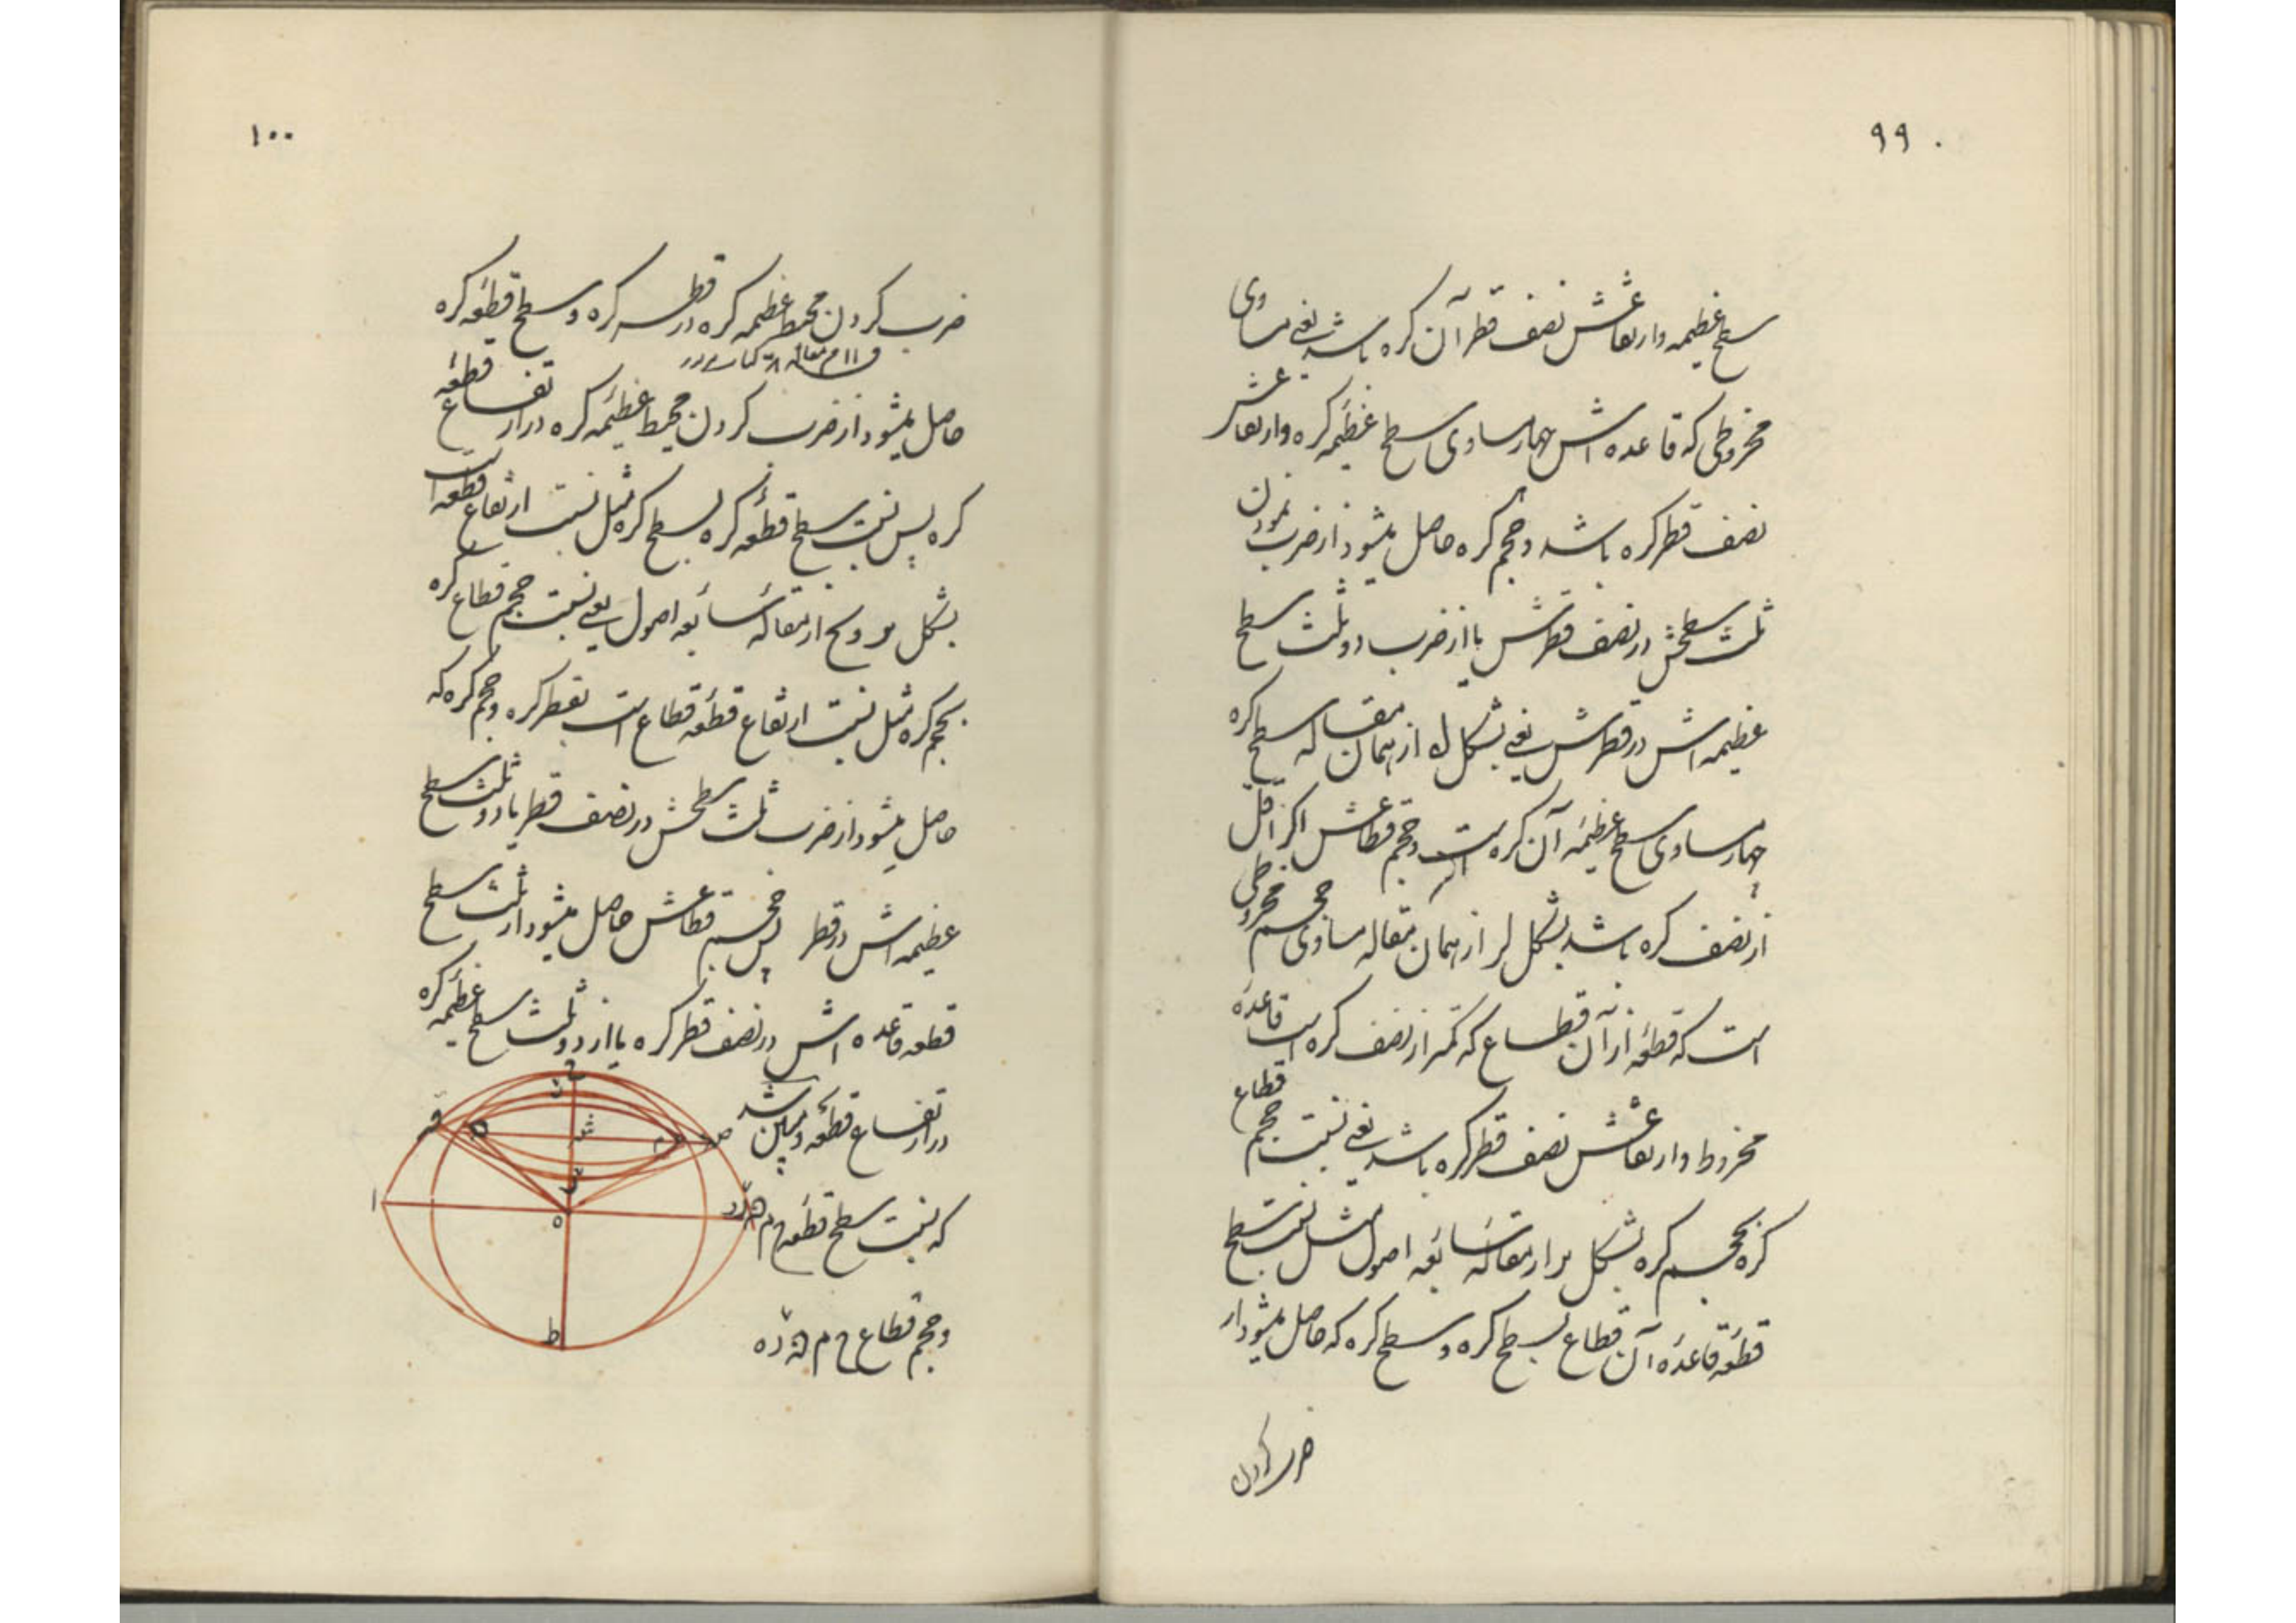 ۹۹
سطح عظیمه و ارتفاعش نصف قطر آن کره باشد یعنی مساوی
مخروطی که قاعده اش چهار مساوی سطح عظیمهٔ کره و ارتفاعش
نصف قطر کره باشد و حجم کره حاصل میشود از ضرب نمودن
ثلث سطحش در نصف قطرش یا از ضرب دو ثلث سطح
عظیمه اش در قطرش یعنی بشکل له از همان مقاله سطح کره
چهار مساوی سطح عظیمهٔ آن کره است و حجم قطاعش اگر اقل
از نصف کره باشد بشکل لر از همان مقاله مساوی حجم مخروطی
است که قطعهٔ از آن قطاع که کمتر از نصف کره است قاعدهٔ
مخروط و ارتفاعش نصف قطر کره باشد یعنی نسبت حجم قطاع
کره بحجم کره بشکل از مقالهٔ سابعه اصول مثل نسبت سطح
قطعهٔ قاعدهٔ آن قطاع بسطح کره و سطح کره که حاصل میشود از
ضرب کردن
۱۰۰
ضرب کردن محیط عظیمه کره در قطر کره و سطح قطعهٔ کره
حاصل میشود از ضرب کردن محیط عظیمهٔ کره در ارتفاع قطعهٔ
کره پس نسبت سطح قطعهٔ کره بسطح کره مثل نسبت ارتفاع قطعه است
بشکل از مقالهٔ سابعه اصول یعنی نسبت حجم قطاع کره
بحجم کره مثل نسبت ارتفاع قطعهٔ قطاع است بقطر کره و حجم کره که
حاصل میشود از ضرب ثلث سطحش در نصف قطر یا دو ثلث سطح
عظیمه اش در قطر پس حجم قطاعش حاصل میشود از ثلث سطح
قطعه قاعده اش در نصف قطر کره یا از دو ثلث سطح عظیمهٔ کره
در ارتفاع قطعه و مبین شد
که نسبت سطح قطعه ح م
و حجم قطاع ح م
ح
ا
ه
ط